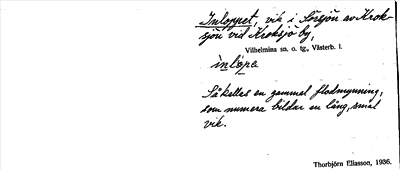 Inloppet, vik i Norsjön av Krok-
sjön vid Kroksjö by,
Vilhelmina sn. o. tg., Västerb. l.
ìnlǫpe
Så kallas en gammal flodmynning,
som numera bildar en lång, smal
vik.
Thorbjörn Eliasson, 1936.